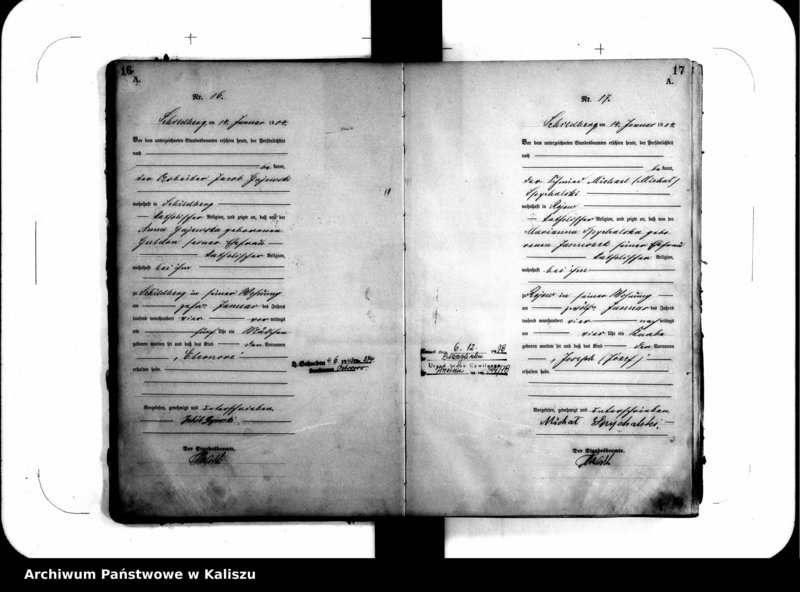 16
A.
Nr. 16.
Schildberg am 14. Januar 1904.
Vor dem unterzeichneten Standesbeamten erschien heute, der Persönlichkeit
nach
be kannt,
der Arbeiter Jacob Gajewski
wohnhaft in Schildberg
katholischer Religion, und zeigte an, daß von der
Anna Gajewska geborenen
seiner Ehefrau
katholischer Religion,
wohnhaft bei ihm
zu Schildberg in seiner Wohnung
am zehn Januar des Jahres
tausend neunhundert vier vor mittags
um fünf Uhr ein Mädchen
geboren worden sei und daß das Kind den Vornamen
„Eleonore"
erhalten habe.
Vorgelesen, genehmigt und unterschrieben
Der Standesbeamte.
17
A.
Nr. 17.
Schildberg am 14. Januar 1904.
Vor dem unterzeichneten Standesbeamten erschien heute, der Persönlichkeit
nach
be kannt,
der Michael (Michał)
Spychalski
wohnhaft in Rojow
katholischer Religion, und zeigte an, daß von der
Marianna Spychalska gebo-
renen seiner Ehefrau
katholischer Religion,
wohnhaft bei ihm
zu Rojow in seiner Wohnung
am zwölf Januar des Jahres
tausend neunhundert vier nach mittags
um vier Uhr ein Knabe
geboren worden sei und daß das Kind den Vornamen
„Joseph (Józef)"
erhalten habe.
Vorgelesen, genehmigt und unterschrieben
Michał Spychalski.
Der Standesbeamte.
6. 12.
Archiwum Państwowe w Kaliszu